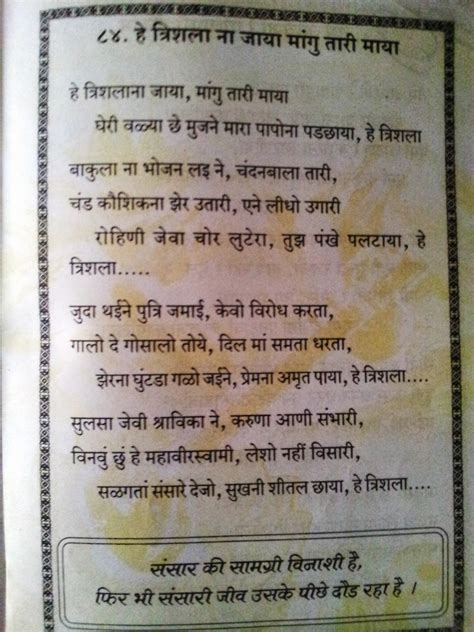 ८४. हे त्रिशला ना जाया मांगु तारी माया
हे त्रिशलाना जाया, मांगु तारी माया
घेरी वळ्या छे मुजने मारा पापोना पडछाया, हे त्रिशला
बाकुला ना भोजन लइ ने, चंदनबाला तारी,
चंड कौशिकना झेर उतारी, एने लीधो उगारी
रोहिणी जेवा चोर लुटेरा, तुझ पंखे पलटाया, हे
त्रिशला.....
जुदा थईने पुत्रि जमाई, केवो विरोध करता,
गालो दे गोसालो तोये, दिल मां समता धरता,
झेरना घुंटडा गळो जईने, प्रेमना अमृत पाया, हे त्रिशला....
सुलसा जेवी श्राविका ने, करुणा आणी संभारी,
विनवुं छुं हे महावीरस्वामी, लेशो नहीं विसारी,
सळगतां संसारे देजो, सुखनी शीतल छाया, हे त्रिशला....
संसार की सामग्री विनाशी है,
फिर भी संसारी जीव उसके पीछे दौड रहा है ।